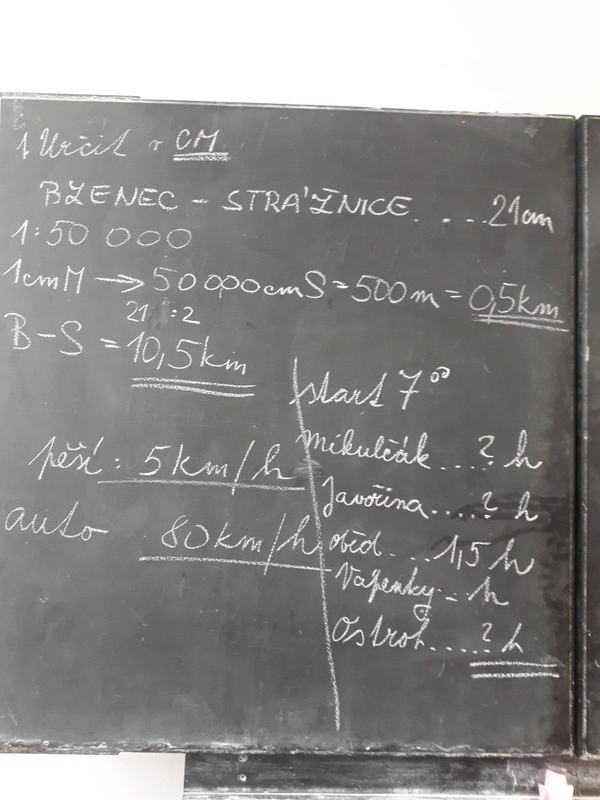 1 Určit v CM
BZENEC - STRÁŽNICE.....21cm
1:50 000
1cmM → 50 000cmS = 500m = 0,5km
21 :2
B-S = 10,5km
start 7°°
Mikulčák....? h
Javořina....? h
oběd....1,5 h
Vápenky.. h
Ostroh.....? h
pěší: 5km/h
auto 80km/h